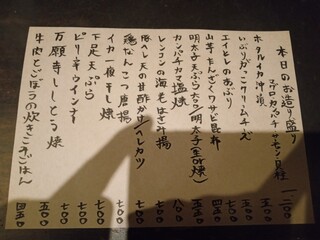 本日のお造り盛り 一二〇〇
マグロ カンパチ サーモン 貝柱
ホタルイカ沖漬 五〇〇
いぶりがっこクリームチーズ 五〇〇
エイヒレのあぶり 五〇〇
山芋たんざくワサビ昆布 五五〇
明太子天ぷら
カンパチカマ塩焼 八〇〇
レンコンの海老はさみ揚 七〇〇
豚ヘレ天の甘酢かけ/ヘレカツ 七〇〇
鶏なんこつ唐揚 七〇〇
イカ一夜干し焼 七〇〇
下足天ぷら 七〇〇
ピリ辛ウインナー 七〇〇
万願寺ししとう焼 五〇〇
牛肉とごぼうの炊きこみごはん 四五〇